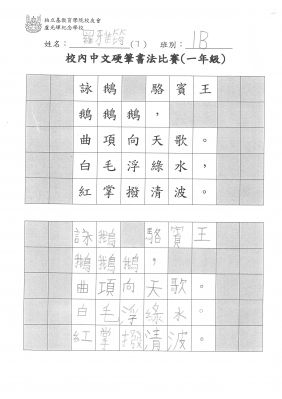 柏立基教育學院校友會
盧光輝紀念學校
姓名: 羅雅 (7) 班別: 1B
校內中文硬筆書法比賽(一年級)
詠鵝 駱賓王
鵝鵝鵝，
曲項向天歌。
白毛浮綠水，
紅掌撥清波。
詠鵝 駱賓王
鵝鵝鵝，
曲項向天歌。
白毛浮綠水。
紅掌撥清波。